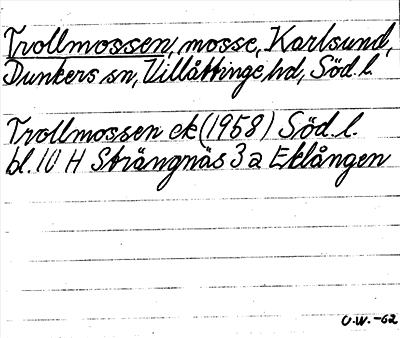 Trollmossen, mosse, Karlsund,
Dunkers sn, Villåttinge hd, Söd. l.
Trollmossen ek (1958) Söd. l.
bl. 10 H Strängnäs 3 a Eklången
O.W. -62